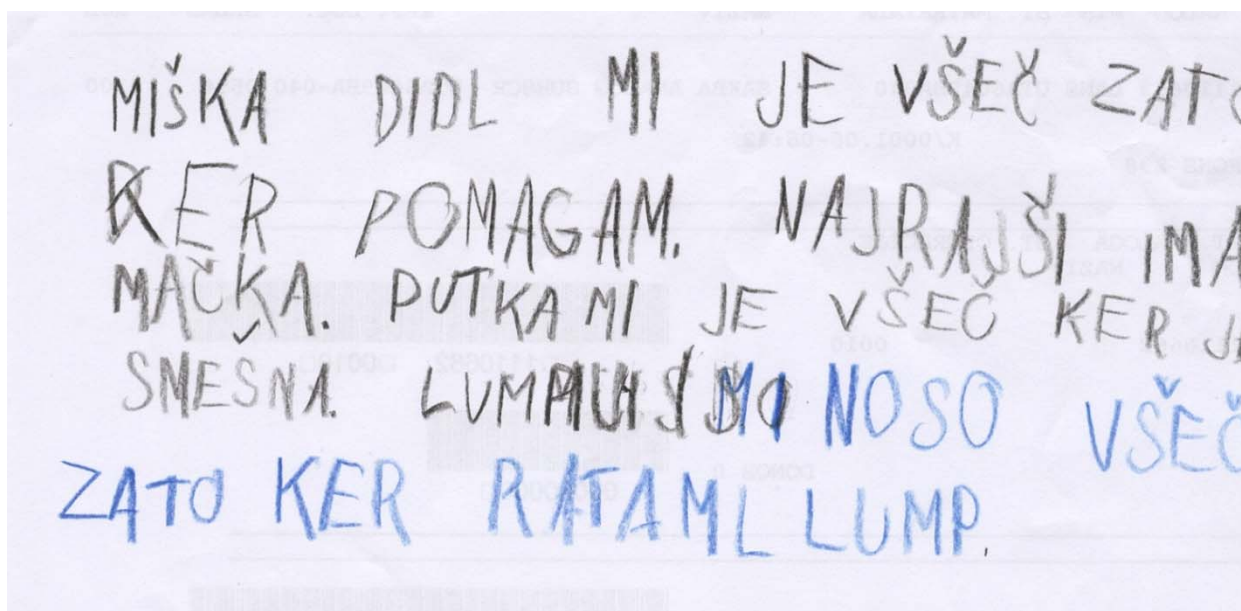 MIŠKA DIDL MI JE VŠEČ ZATO
KER POMAGAM. NAJRAJŠI MA
MAČKA. PUTKA MI JE VŠEČ KER JE
SMESNA. MI NOSO VŠEČ
ZATO KER RATAML LUMP.